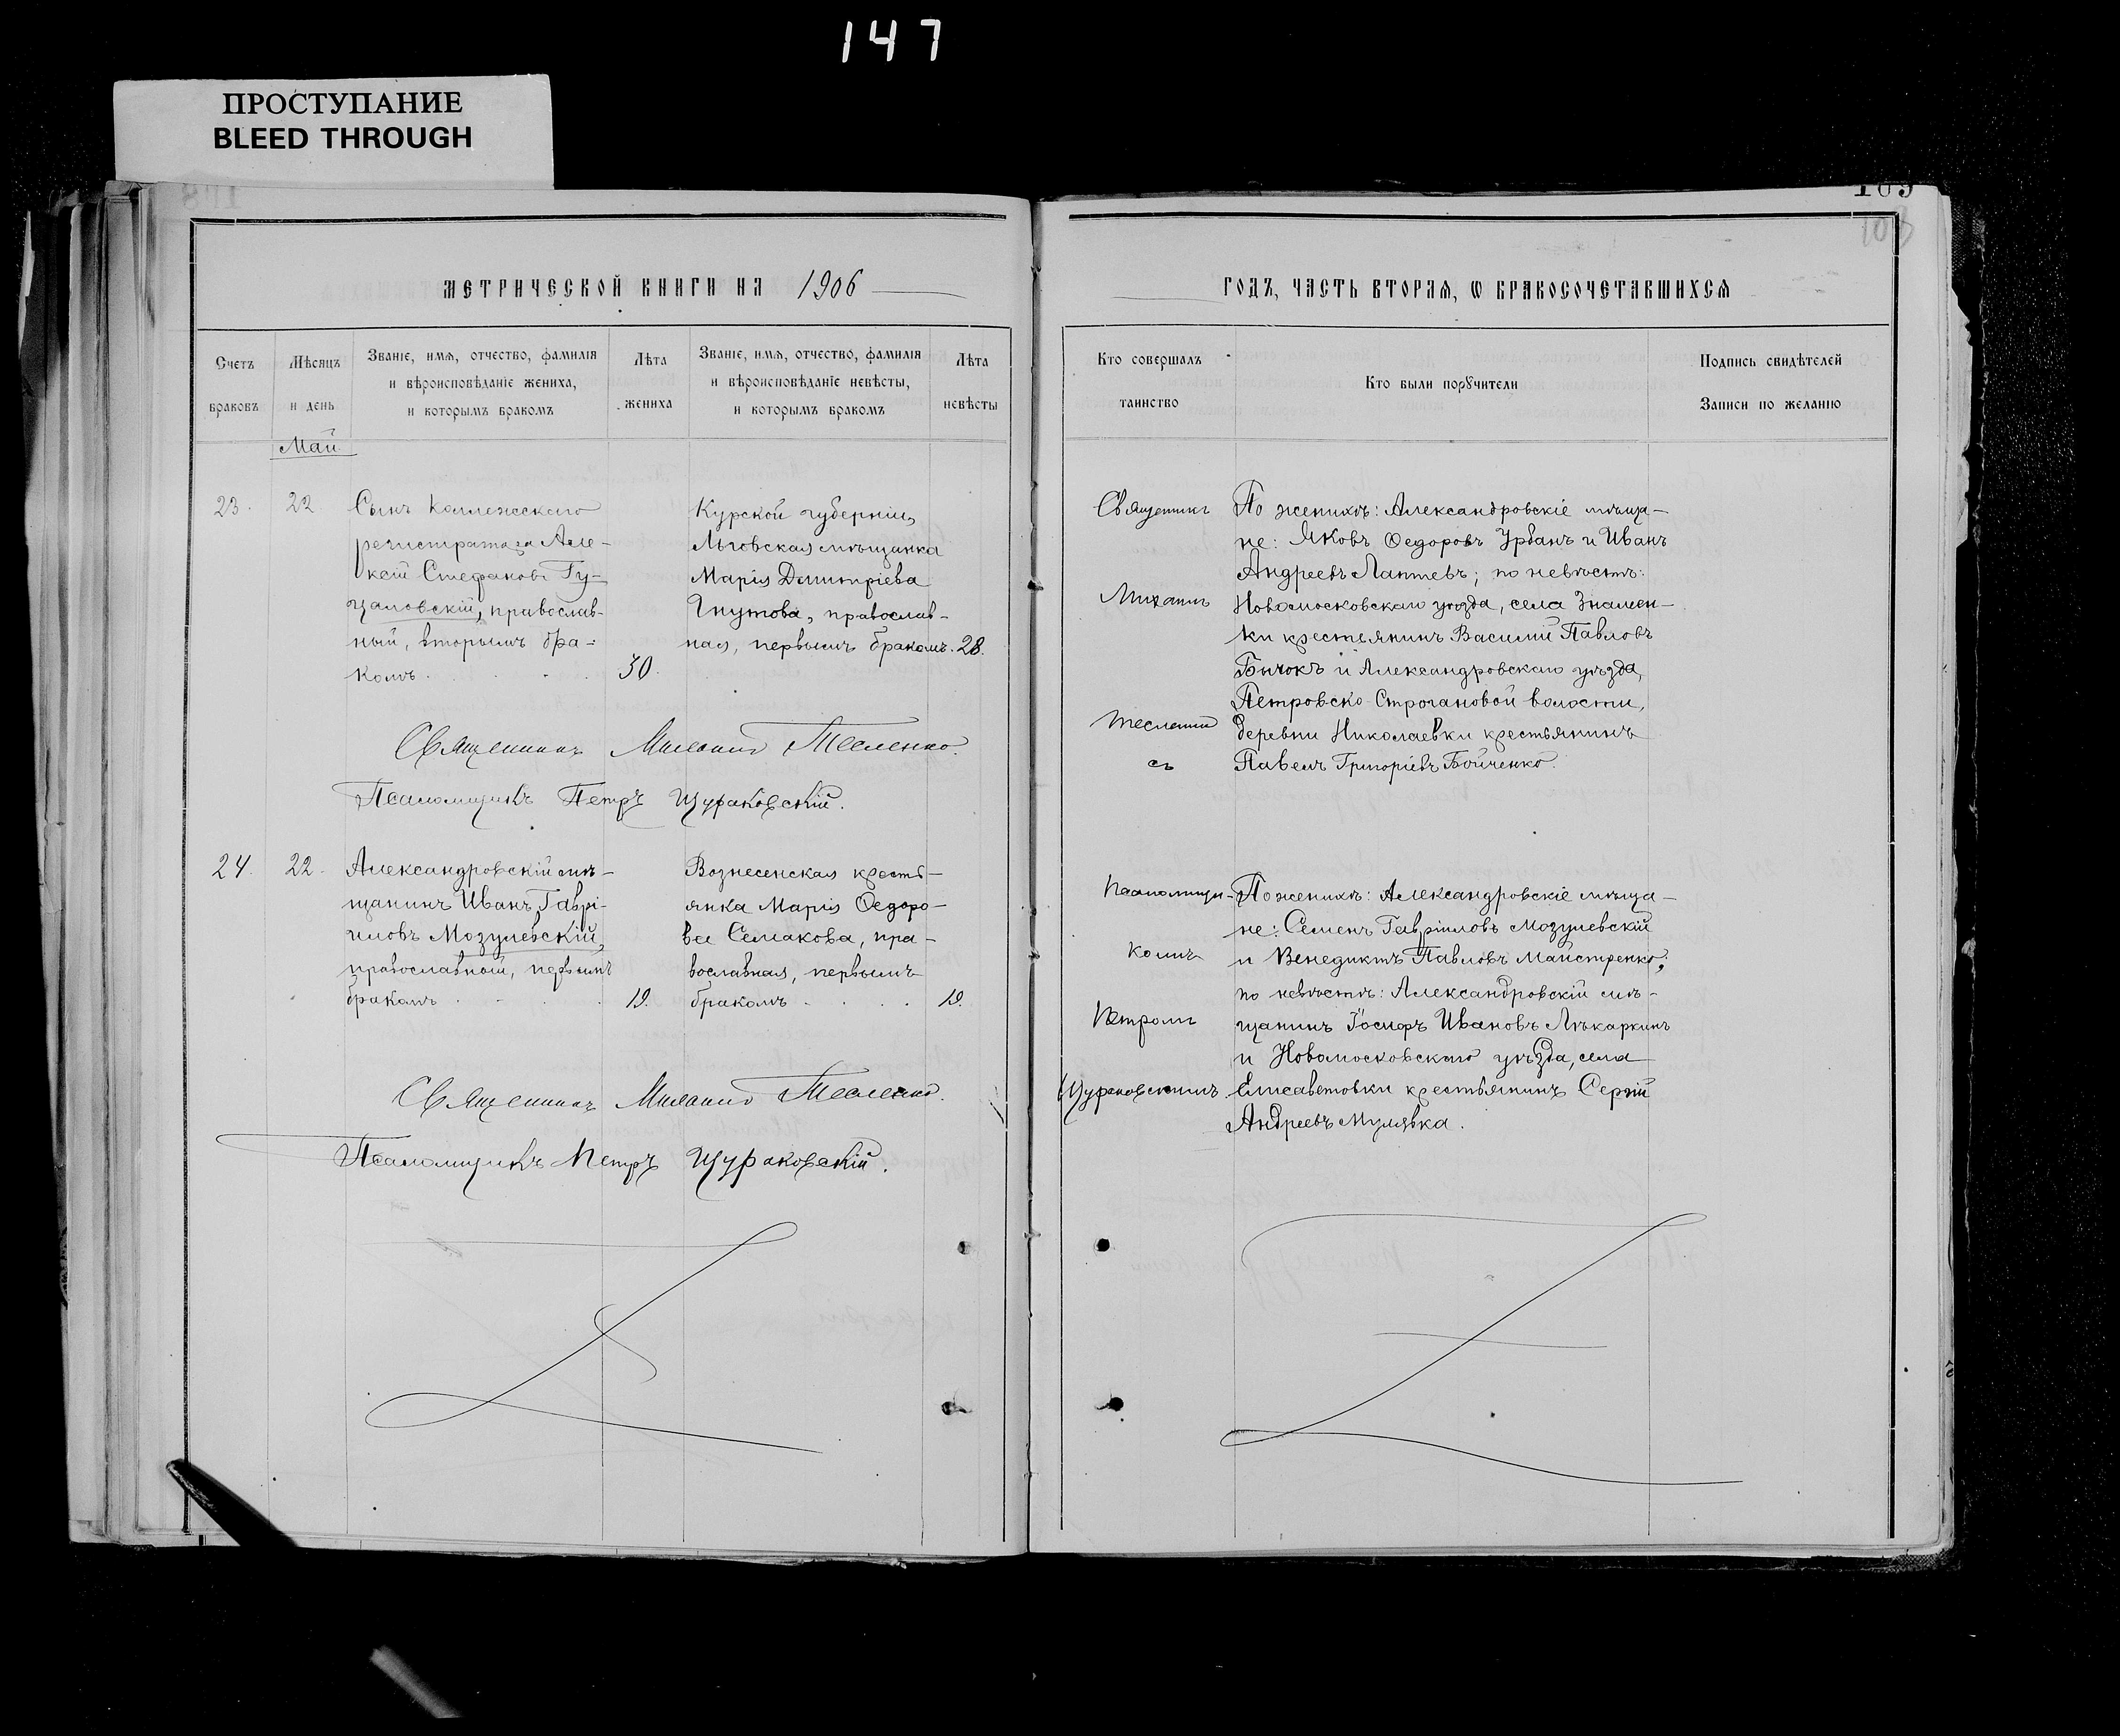 147
ПРОСТУПАНИЕ
BLEED THROUGH
МЕТРИЧЕСКОЙ КНИГИ НА 1906
Счетъ браковъ
Мѣсяцъ и день
Званіе, имя, отчество, фамилія
и вѣроисповѣданіе жениха,
и которымъ бракомъ
Лѣта жениха
Званіе, имя, отчество, фамилія
и вѣроисповѣданіе невѣсты,
и которымъ бракомъ
Лѣта невѣсты
Май
23.
22
Сынъ Коллежскаго
регистратора Але-
ксій Стефановъ Гу-
цаловскій, православ-
ный, вторымъ бра-
комъ
30.
Курской губерніи,
Льговская мѣщанка
Марія Димитріева
Гнутова, православ-
ная, первымъ бракомъ.
28.
Священникъ Михаилъ Тесленко.
Псаломщикъ Петръ Щураковскій.
24.
22.
Александровскій мѣ-
щанинъ Иванъ Гаврі-
иловъ Мозулевскій,
православный, первымъ
бракомъ
19.
Вознесенская кресть-
янка Марія Ѳедоро-
ва Семакова, пра-
вославная, первымъ
бракомъ
19.
Священникъ Михаилъ Тесленко.
Псаломщикъ Петръ Щураковскій.
109
108
ГОДЪ, ЧАСТЬ ВТОРАЯ, Ѡ БРАКОСОЧЕТАВШИХСЯ
Кто совершалъ
таинство
Кто были порꙋчители
Подпись свидѣтелей
Записи по желанію
Священникъ
Михаилъ
Тесленко
съ
По женихѣ: Александровскіе мѣща-
не: Яковъ Ѳедоровъ Урбанъ и Иванъ
Андреевъ Лаптевъ; по невѣстѣ:
Новомосковскаго уѣзда, села Знамен-
ки крестьянинъ Василій Павловъ
Бычокъ и Александровскаго уѣзда,
Петровско-Строгановой волости,
деревни Николаевки крестьянинъ
Павелъ Григоріевъ Бойченко.
Псаломщи-
комъ
Петромъ
Щураковскимъ
По женихѣ: Александровскіе мѣща-
не: Семенъ Гавріиловъ Мозулевскій
и Венедиктъ Павловъ Майстренко;
по невѣстѣ: Александровскій мѣ-
щанинъ Іосифъ Ивановъ Лѣкаркинъ
и Новомосковскаго уѣзда, села
Елисаветовки крестьянинъ Сергій
Андреевъ Мулявка.